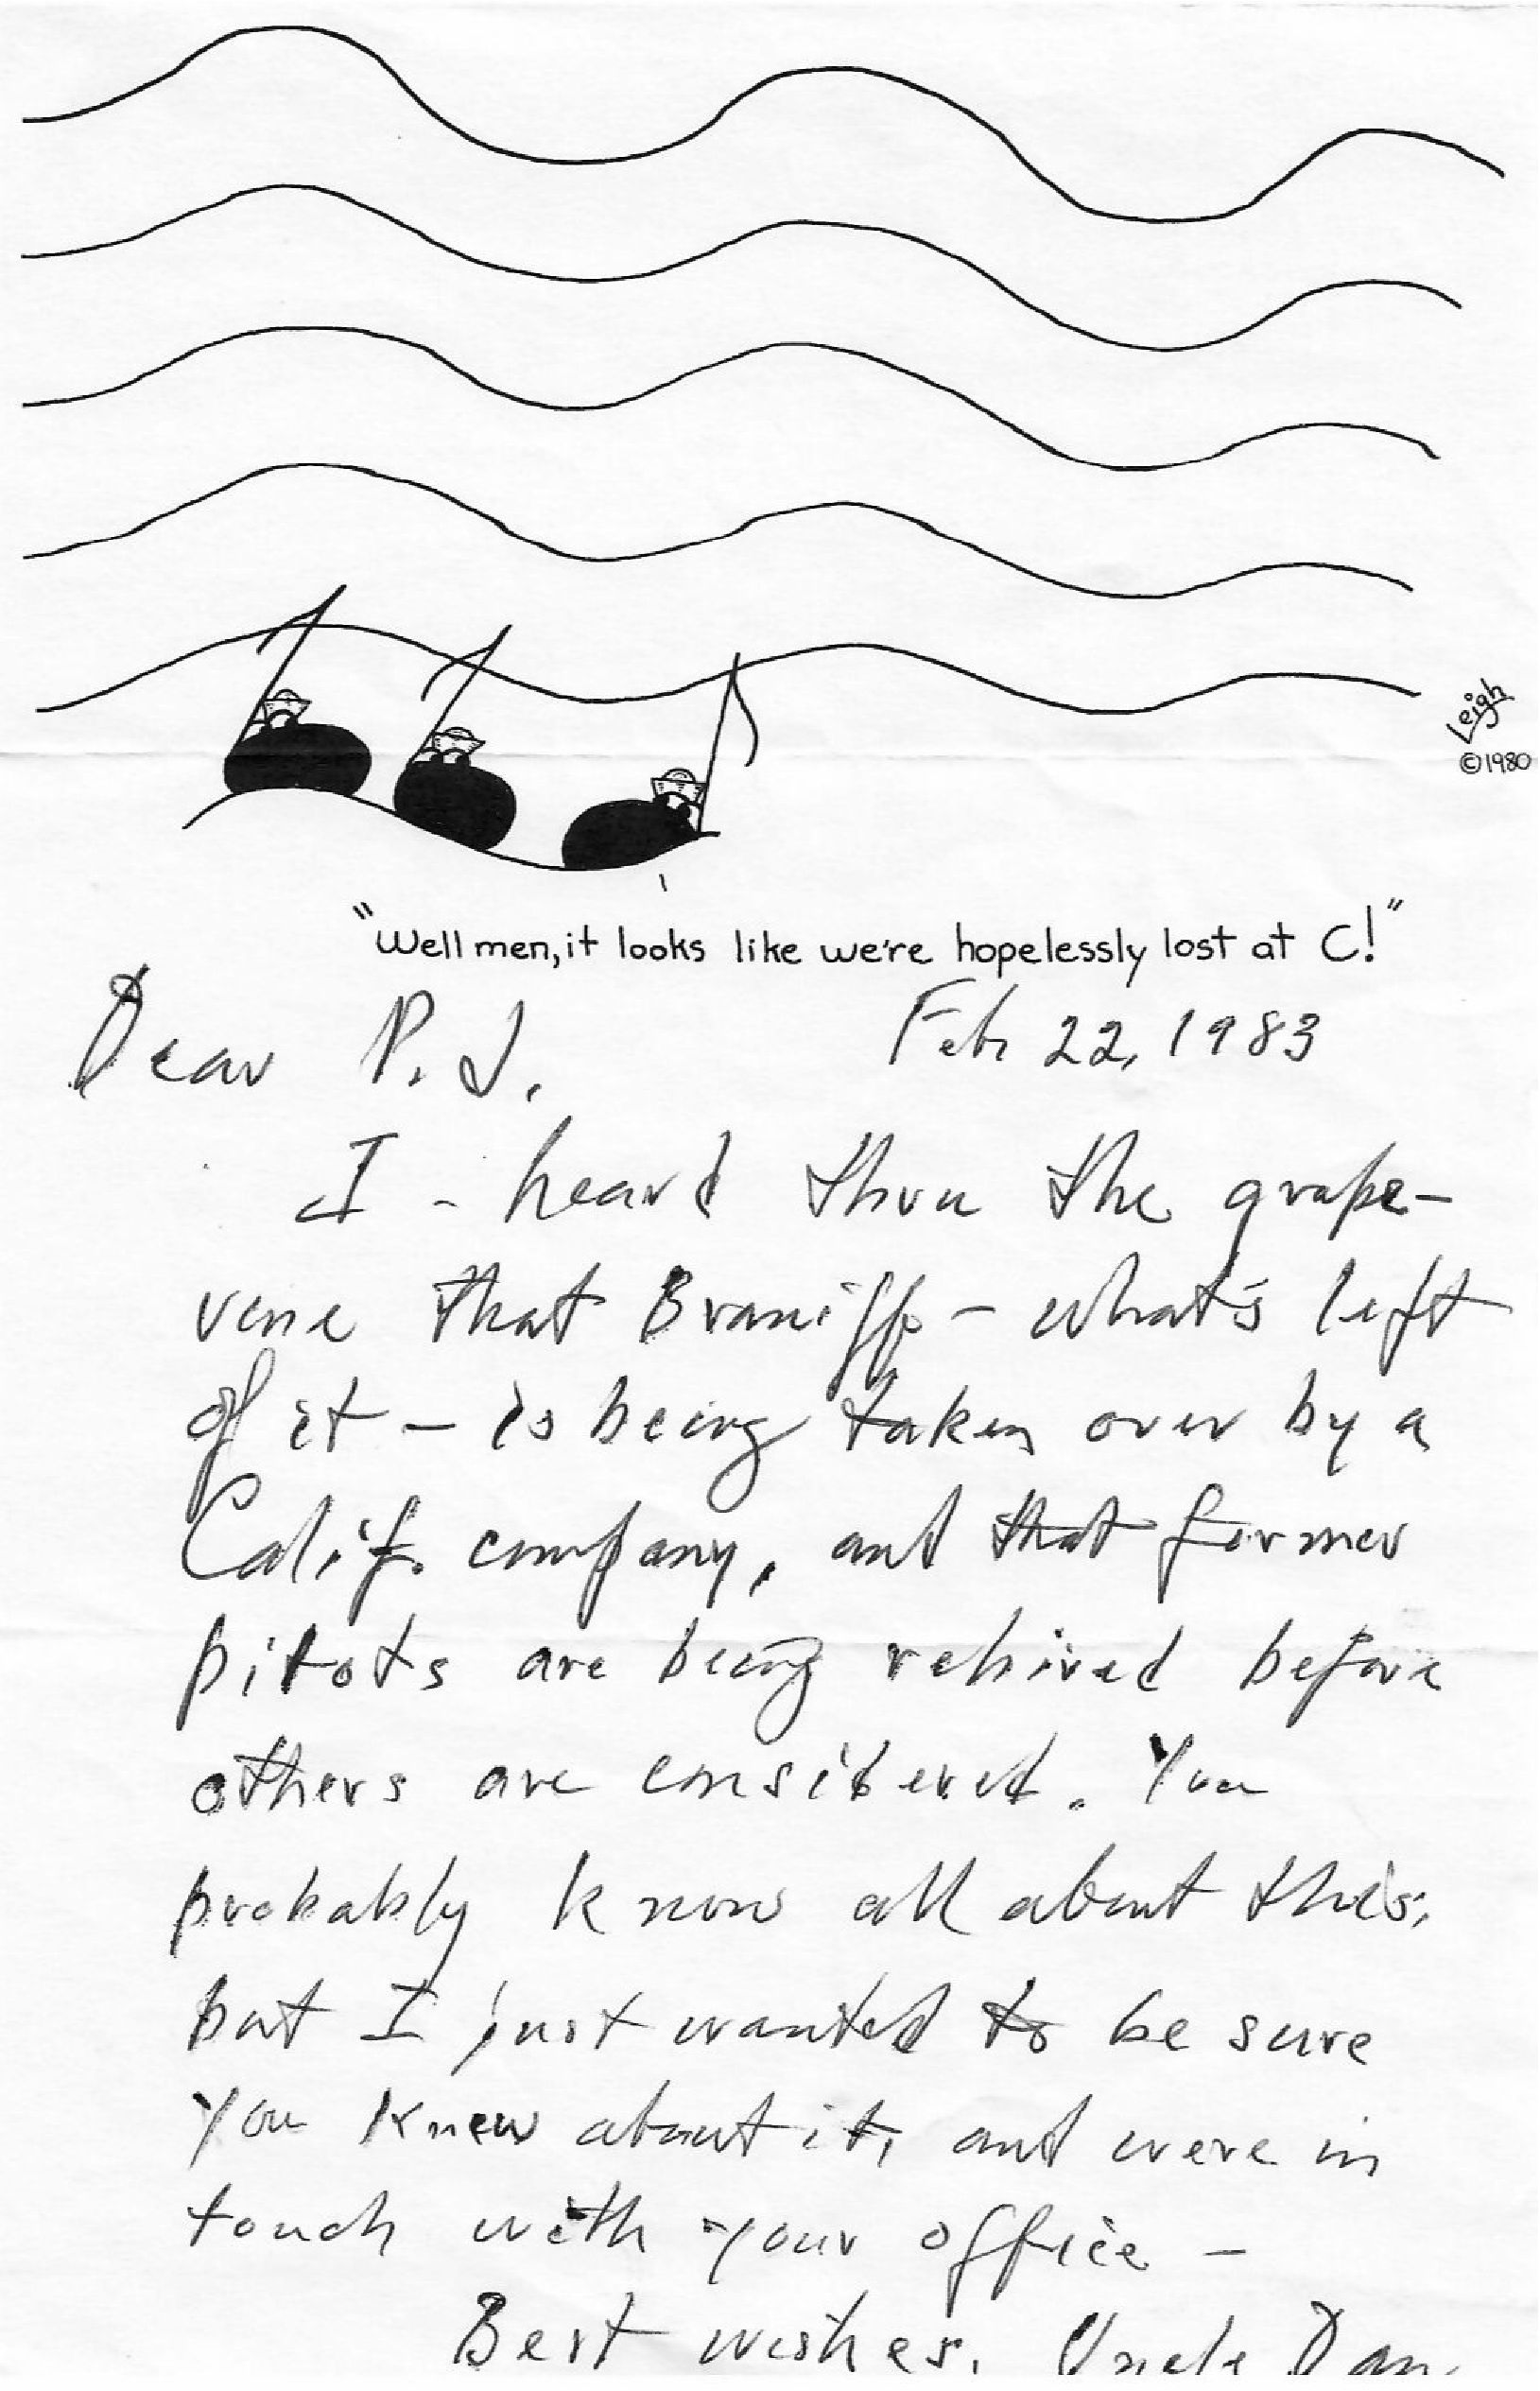 Leigh
©1980
"Well men, it looks like we're hopelessly lost at C!"
Dear P. J. Feb 22, 1983
I - heard thru the grape-
vine that Braniff - what's left
of it - is being taken over by a
Calif. company, and that former
pilots are being rehired before
others are considered. You
probably know all about this,
but I just wanted to be sure
you knew about it, and were in
touch with your office -
Best wishes, Uncle Dan